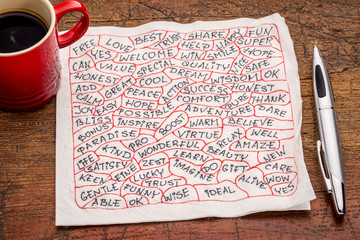 FREE LOVE BEST TRUST HAPPY FUN
CAN YES WELCOME WIN HELP SMILE SUPER
VALUE SPECIAL QUALITY
HONEST COOL DREAM WISDOM OK
ADD GREAT SUCCESS THANK
JOY PEACE COMFORT
HOPE ADVENTURE DARE
BLISS INSPIRE WARM BELIEVE
BONUS BOOST VIRTUE WELL
PARADISE PRO RELAX AMAZE
LIFE KIND WONDERFUL BEAUTY NEW
SATISFY FINE ZEST LEARN GIFT CARE
KEEN LUCKY IMAGINE ALIVE NOW
GENTLE FUNNY TRUST WISE IDEAL YES
ABLE OK